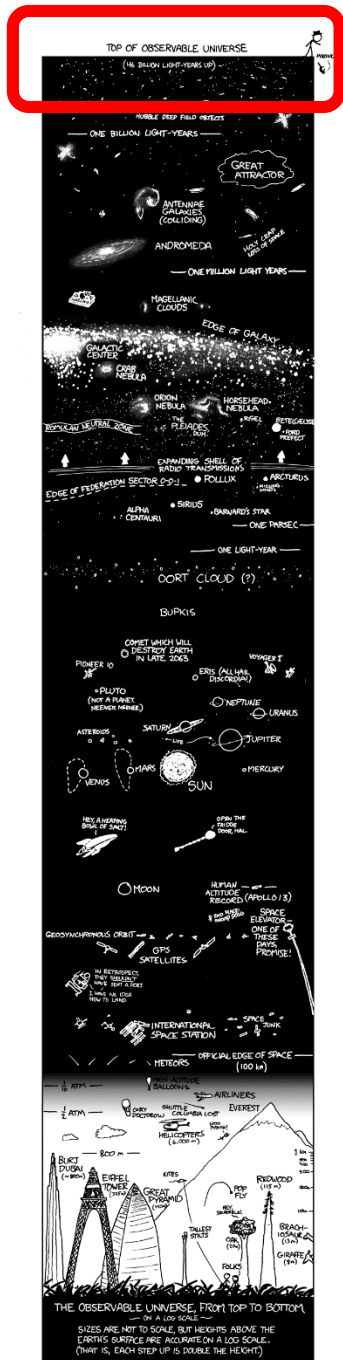 TOP OF OBSERVABLE UNIVERSE
(46 BILLION LIGHT-YEARS UP)
HUBBLE DEEP FIELD OBJECTS
ONE BILLION LIGHT-YEARS
GREAT
ATTRACTOR
ANTENNAE
GALAXIES
(COLLIDING)
ANDROMEDA
HOLY CRAP
LOTS OF SPACE
ONE MILLION LIGHT YEARS
MAGELLANIC
CLOUDS
EDGE OF GALAXY
GALACTIC
CENTER
CRAB
NEBULA
ORION
NEBULA
HORSEHEAD
NEBULA
THE
PLEIADES,
DUH.
RIGEL
BETELGEUSE
FORD
PREFECT
ROMULAN NEUTRAL ZONE
EXPANDING SHELL OF
RADIO TRANSMISSIONS
POLLUX
ARCTURUS
EDGE OF FEDERATION SECTOR 0-0-1
ALPHA
CENTAURI
SIRIUS
BARNARD'S STAR
ONE PARSEC
ONE LIGHT-YEAR
OORT CLOUD (?)
BUPKIS
COMET WHICH WILL
DESTROY EARTH
IN LATE 2063
PIONEER 10
ERIS (ALL HAIL
DISCORDIA!)
VOYAGER I
PLUTO
(NOT A PLANET,
NEENER NEENER)
NEPTUNE
URANUS
SATURN
ASTEROIDS
JUPITER
VENUS
MARS
SUN
MERCURY
HEY, A HEAPING
BOWL OF SALT!
OPEN THE
FRIDGE
DOOR, HAL.
MOON
HUMAN
ALTITUDE
RECORD (APOLLO 13)
SPACE
ELEVATOR—
ONE OF
THESE
DAYS,
PROMISE!
GEOSYNCHRONOUS ORBIT
GPS
SATELLITES
IN RETROSPECT,
THEY SHOULDN'T
HAVE SENT A POET.
I HAVE NO IDEA
HOW TO LAND.
INTERNATIONAL
SPACE STATION
SPACE
JUNK
METEORS
OFFICIAL EDGE OF SPACE
(100 km)
HIGH-ALTITUDE
BALLOONS
AIRLINERS
1/2 ATM
CORY
DOCTOROW
SHUTTLE
COLUMBIA LOST
EVEREST
HELICOPTERS
(6,000 m)
800 m
1 km
BURJ
DUBAI
EIFFEL
TOWER
GREAT
PYRAMID
KITES
POP
FLY
REDWOOD
(115 m)
TALLEST
STILTS
OAK
FOLKS
BRACH-
IOSAUR
GIRAFFE
THE OBSERVABLE UNIVERSE, FROM TOP TO BOTTOM
ON A LOG SCALE
SIZES ARE NOT TO SCALE, BUT HEIGHTS ABOVE THE
EARTH'S SURFACE ARE ACCURATE ON A LOG SCALE.
(THAT IS, EACH STEP UP IS DOUBLE THE HEIGHT.)